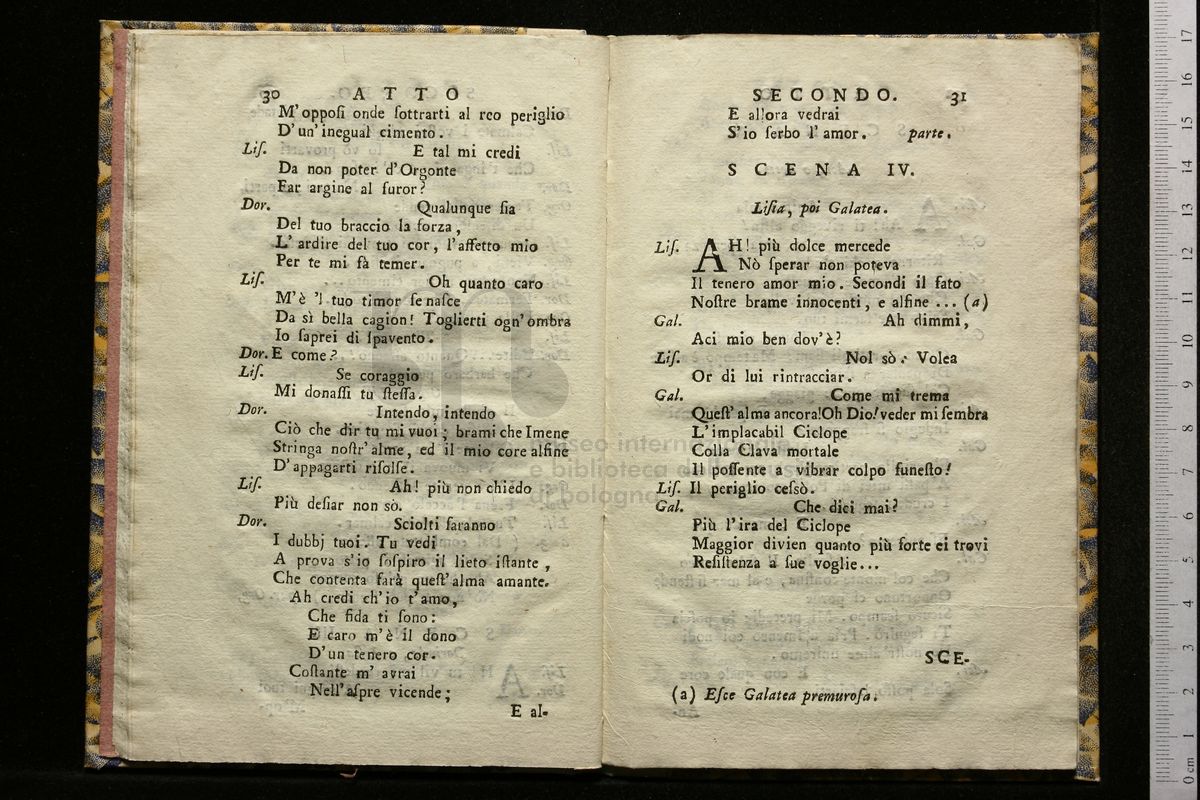 30 ATTO
M'opposi onde sottrarti al reo periglio
D'un'inegual cimento.
Lis. E tal mi credi
Da non poter d'Orgonte
Far argine al furor?
Dor. Qualunque sia
Del tuo braccio la forza,
L'ardire del tuo cor, l'affetto mio
Per te mi fà temer.
Lis. Oh quanto caro
M'è 'l tuo timor se nasce
Da sì bella cagion! Toglierti ogn'ombra
Io saprei di spavento.
Dor. E come?
Lis. Se coraggio
Mi donassi tu stessa.
Dor. Intendo, intendo
Ciò che dir tu mi vuoi; brami che Imene
Stringa nostr'alme, ed il mio core alfine
D'appagarti risolse.
Lis. Ah! più non chiedo
Più desiar non sò.
Dor. Sciolti saranno
I dubbj tuoi. Tu vedi
A prova s'io sospiro il lieto istante,
Che contenta farà quest'alma amante.
Ah credi ch'io t'amo,
Che fida ti sono:
E caro m'è il dono
D'un tenero cor.
Costante m'avrai
Nell'aspre vicende;
E al-
SECONDO. 31
E allora vedrai
S'io serbo l'amor. parte.
SCENA IV.
Lisia, poi Galatea.
Lis. AH! più dolce mercede
Nò sperar non poteva
Il tenero amor mio. Secondi il fato
Nostre brame innocenti, e alfine ... (a)
Gal. Ah dimmi,
Aci mio ben dov'è?
Lis. Nol sò. Volea
Or di lui rintracciar.
Gal. Come mi trema
Quest'alma ancora! Oh Dio! veder mi sembra
L'implacabil Ciclope
Colla Clava mortale
Il possente a vibrar colpo funesto!
Lis. Il periglio cessò.
Gal. Che dici mai?
Più l'ira del Ciclope
Maggior divien quanto più forte ei trovi
Resistenza a sue voglie...
SCE-
(a) Esce Galatea premurosa.
museo internazionale
e biblioteca della musica
di bologna
0 cm 1 2 3 4 5 6 7 8 9 10 11 12 13 14 15 16 17